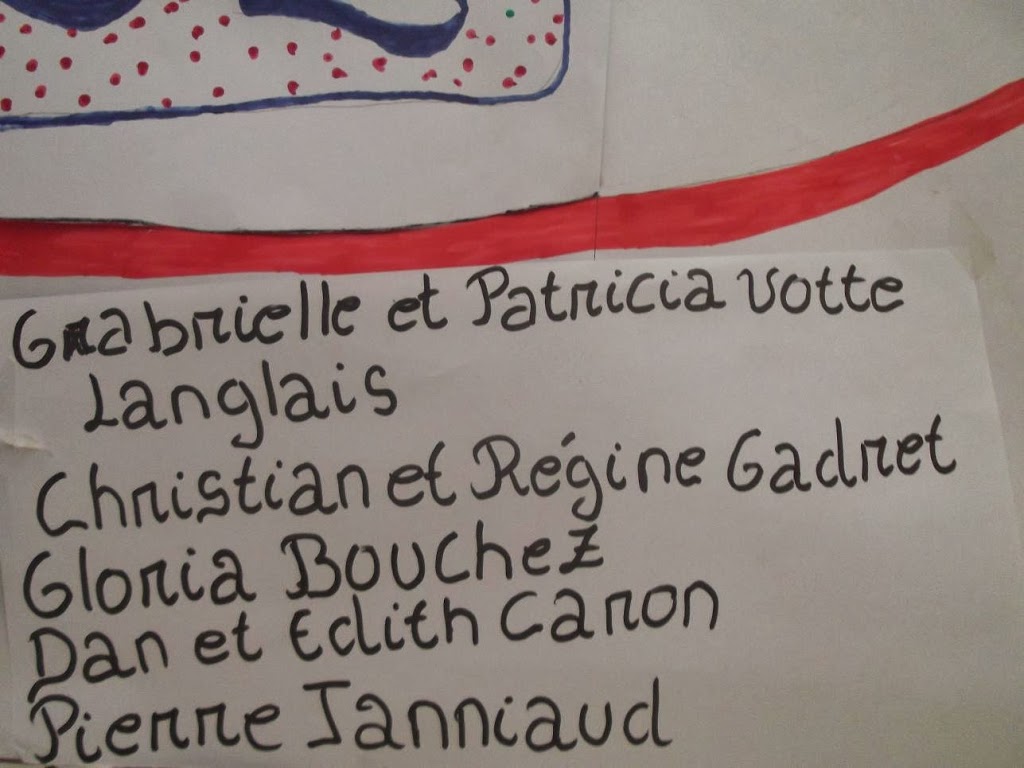 Gabrielle et Patricia Votte
Langlais
Christian et Régine Gadret
Gloria Bouchez
Dan et Edith Caron
Pierre Janniaud